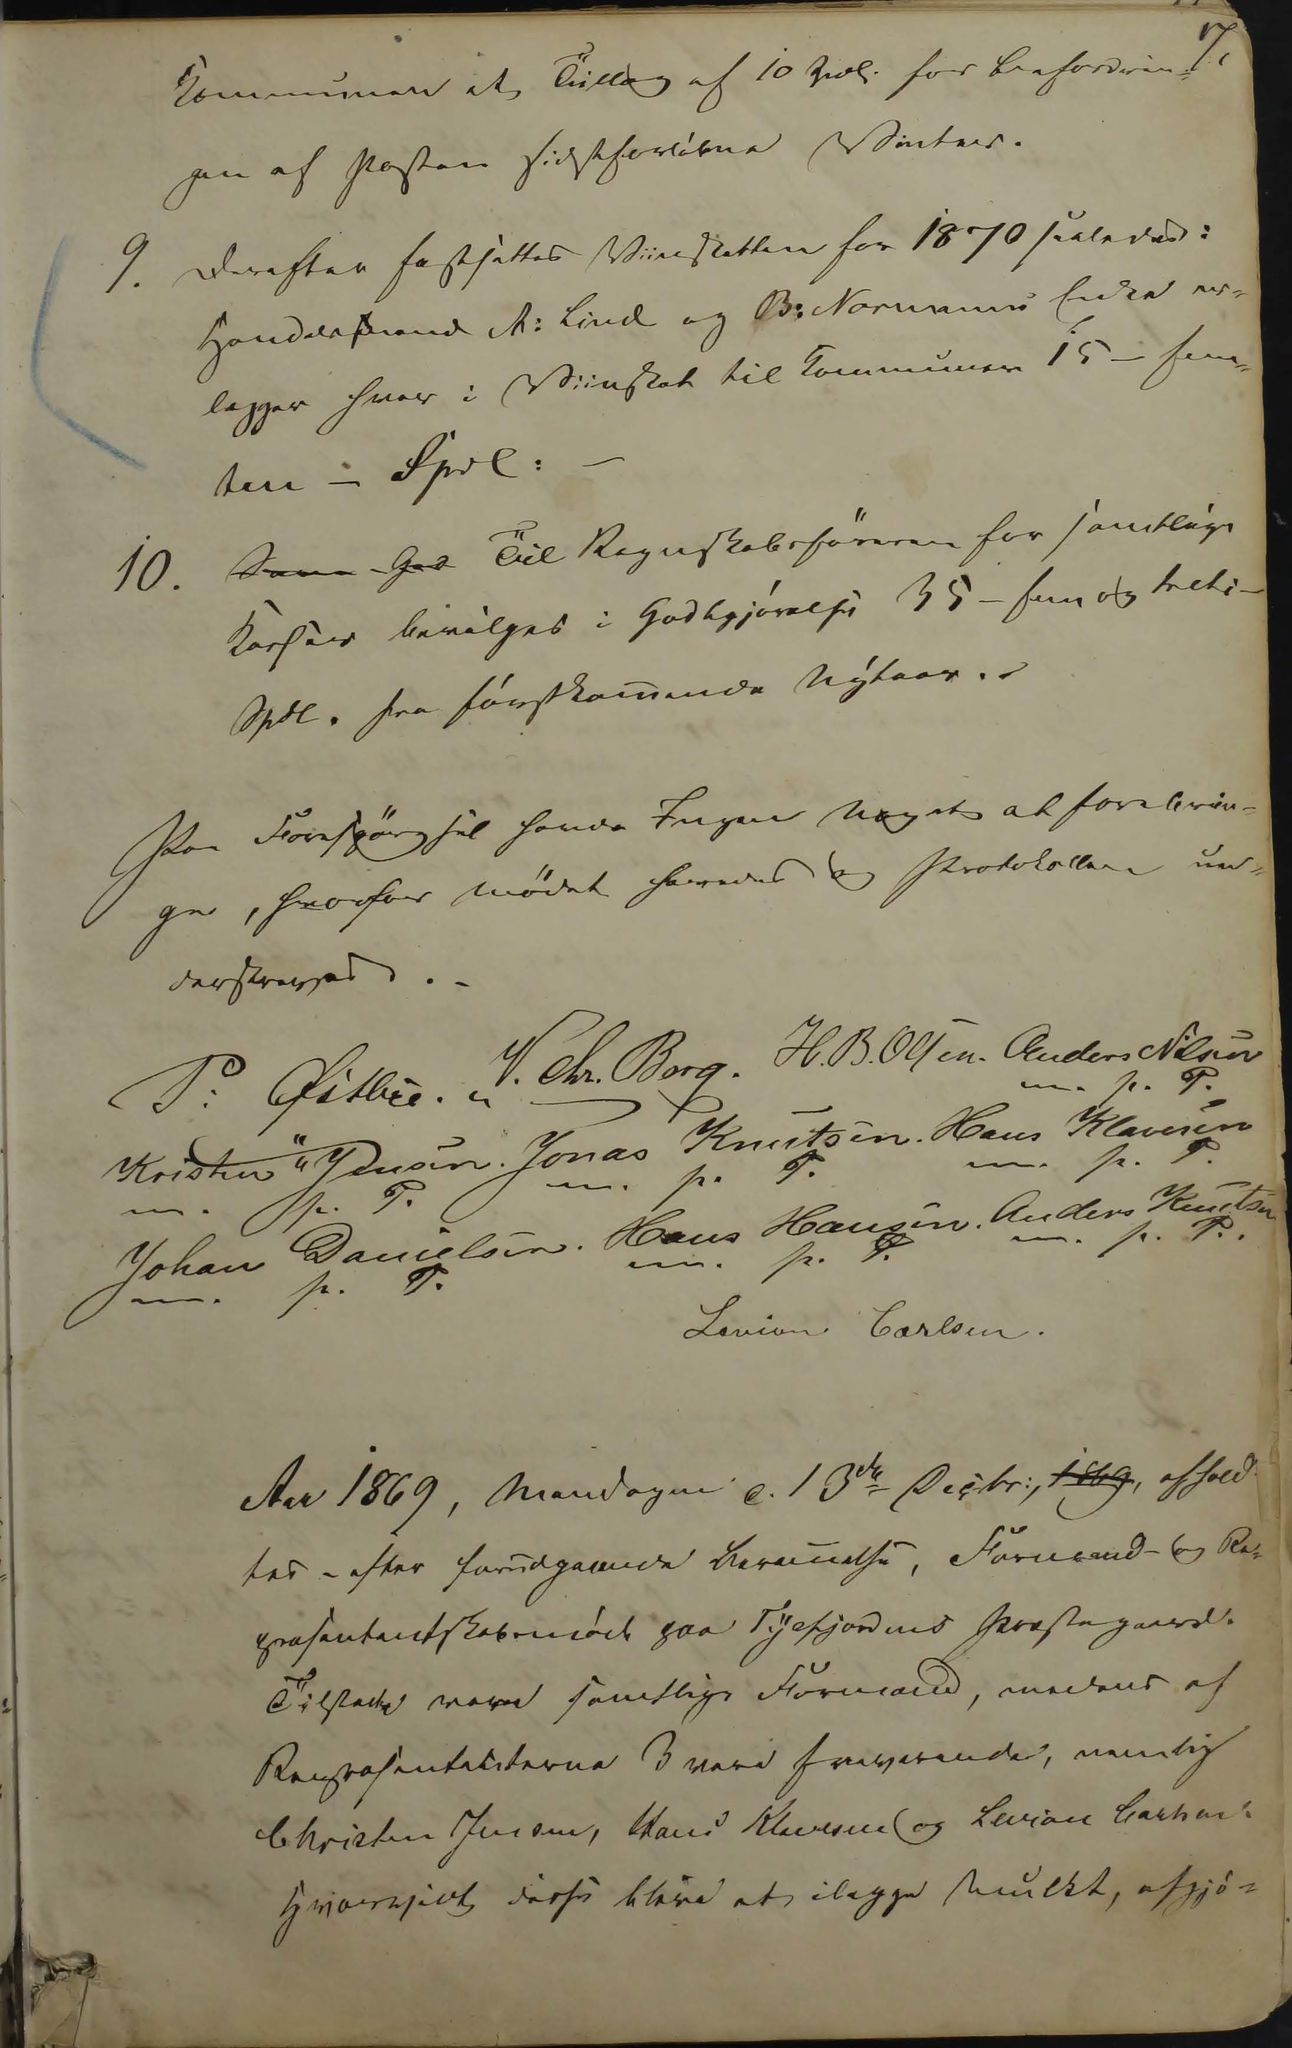 17.
Kommunen et Tillæg af 10 Spdl. for Befordrin-
gen af Posten sidstforløbne Vinter.
9. Derefter fastsattes Viinskatten for 1870 saaledes:
Handelsmand A: Lind og B: Normanns Enke er-
lægger hver i Viinskat til Kommunen 15 - fem-
ten - Spdl: -
10. Til Regnskabsføreren for samtlige
Kasser bevilges i Godtgjørelse 35 - fem og treti -
Spdl. fra førstkommende Nytaar. -
Paa Forespørgsel havde Ingen Noget at forebrin-
ge, hvorfor Mødet hævedes og Protokollen un-
derskreves. -
P: Østbye. N. Chr. Berg. H. B. Olsen. Anders Nilsen
m. p. P.
Kristen Jensen. Jonas Knutsen. Hans Klavesen
m. p. P. m. p. P. m. p. P.
Johan Danielsen. Hans Hansen. Anders Knutsen
m. p. P. m. p. P. m. p. P.
Levion Carlsen.
Aar 1869, Mandagen d. 13de Decbr:, 1869, afhold-
tes - efter foregaaende Berammelse, Formand- og Re-
præsentantskabsmøde paa Tysfjordens Præstegaard.
Tilstede vare samtlige Formænd, medens af
Repræsentanterne 3 vare fraværende, nemlig
Christen Jensen, Hans Klavesen og Levion Carlsen.
Hvorvidt disse bleve at ilægge Mulkt, afgjø-